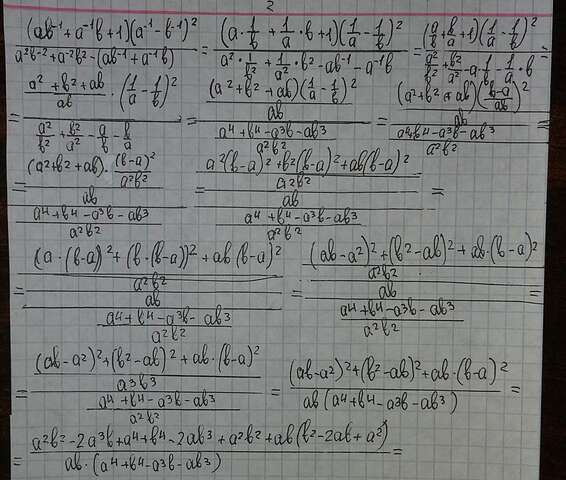 2
\frac{(ab^{-1}+a^{-1}b+1)(a^{-1}-b^{-1})^2}{a^2b^{-2}+a^{-2}b^2-(ab^{-1}+a^{-1}b)} = \frac{(a·\frac{1}{b}+\frac{1}{a}·b+1)(\frac{1}{a}-\frac{1}{b})^2}{a^2·\frac{1}{b^2}+\frac{1}{a^2}·b^2-ab^{-1}-a^{-1}b} = \frac{(\frac{a}{b}+\frac{b}{a}+1)(\frac{1}{a}-\frac{1}{b})^2}{\frac{a^2}{b^2}+\frac{b^2}{a^2}-a·\frac{1}{b}-\frac{1}{a}·b}
= \frac{\frac{a^2+b^2+ab}{ab}·(\frac{1}{a}-\frac{1}{b})^2}{\frac{a^2}{b^2}+\frac{b^2}{a^2}-\frac{a}{b}-\frac{b}{a}} = \frac{\frac{(a^2+b^2+ab)(\frac{1}{a}-\frac{1}{b})^2}{ab}}{\frac{a^4+b^4-a^3b-ab^3}{a^2b^2}} = \frac{\frac{(a^2+b^2+ab)(\frac{b-a}{ab})^2}{ab}}{\frac{a^4+b^4-a^3b-ab^3}{a^2b^2}} =
= \frac{\frac{(a^2+b^2+ab)·\frac{(b-a)^2}{a^2b^2}}{ab}}{\frac{a^4+b^4-a^3b-ab^3}{a^2b^2}} = \frac{\frac{\frac{a^2(b-a)^2+b^2(b-a)^2+ab(b-a)^2}{a^2b^2}}{ab}}{\frac{a^4+b^4-a^3b-ab^3}{a^2b^2}} =
= \frac{\frac{\frac{(a·(b-a))^2+(b·(b-a))^2+ab(b-a)^2}{a^2b^2}}{ab}}{\frac{a^4+b^4-a^3b-ab^3}{a^2b^2}} = \frac{\frac{\frac{(ab-a^2)^2+(b^2-ab)^2+ab·(b-a)^2}{a^2b^2}}{ab}}{\frac{a^4+b^4-a^3b-ab^3}{a^2b^2}} =
= \frac{\frac{(ab-a^2)^2+(b^2-ab)^2+ab·(b-a)^2}{a^3b^3}}{\frac{a^4+b^4-a^3b-ab^3}{a^2b^2}} = \frac{(ab-a^2)^2+(b^2-ab)^2+ab·(b-a)^2}{ab(a^4+b^4-a^3b-ab^3)} =
= \frac{a^2b^2-2a^3b+a^4+b^4-2ab^3+a^2b^2+ab(b^2-2ab+a^2)}{ab·(a^4+b^4-a^3b-ab^3)} =